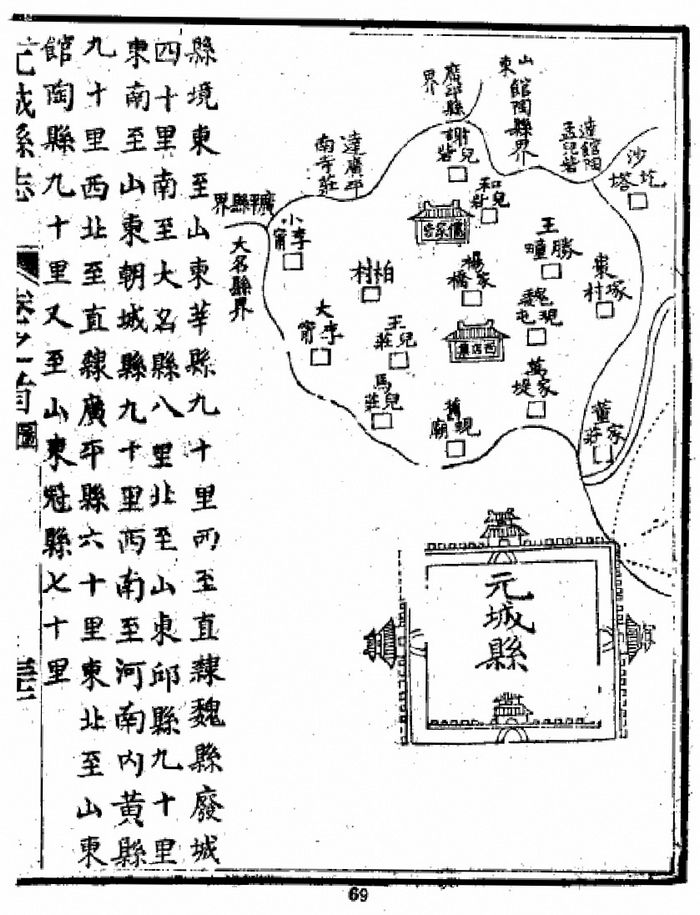 山東館陶縣界
達館陶孟兒寨
沙圪塔
謝兒寨
王勝疃
東塚村
楊家橋
魏現屯
萬家堤
董家莊
柏村
王兒莊
馬兒莊
小李甯
大李甯
達廣平南寺莊
廣平縣界
大名縣界
西店集
元城縣
縣境東至山東莘縣九十里西至直隸魏縣廢城
四十里南至大名縣八里北至山東邱縣九十里
東南至山東朝城縣九十里西南至河南内黃縣
九十里西北至直隸廣平縣六十里東北至山東
館陶縣九十里又至山東冠縣七十里
元城縣志
卷之首
圖
69